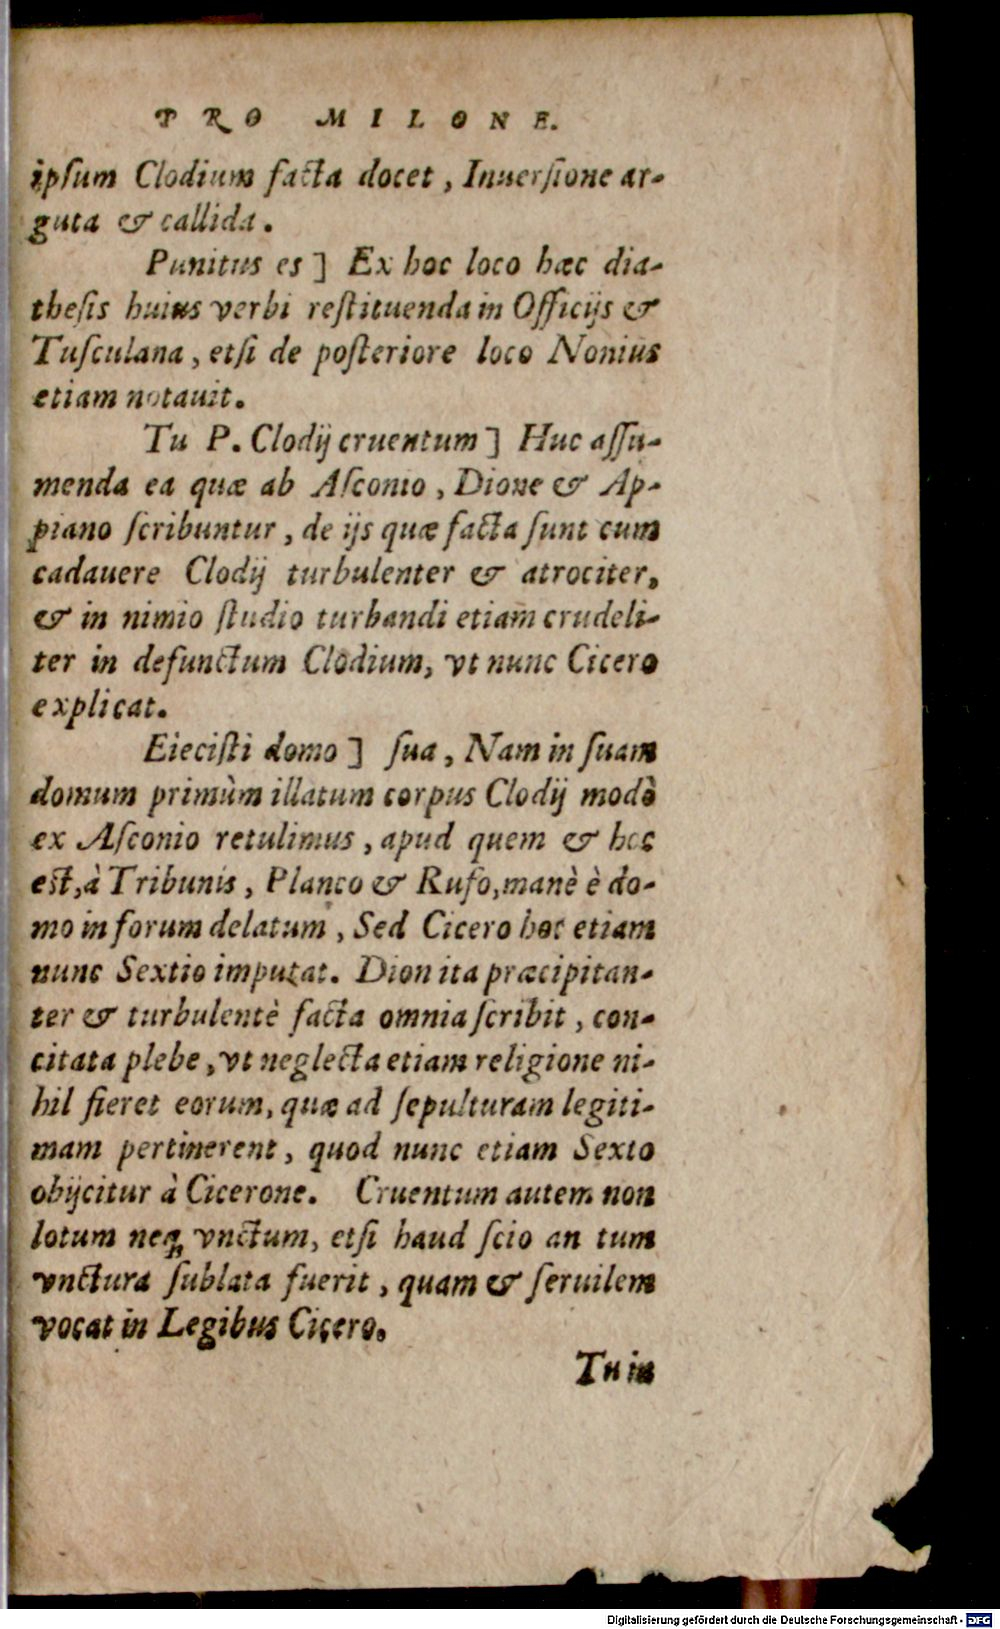 PRO MILONE.
ipſum Clodium facta docet, Inuerſione ar-
guta & callida.
Punitus es] Ex hoc loco hæc dia-
theſis huius verbi reſtituenda in Officijs &
Tuſculana, etſi de poſteriore loco Nonius
etiam notauit.
Tu P. Clodij cruentum] Huc aſſu-
menda ea quæ ab Aſconio, Dione & Ap-
piano ſcribuntur, de ijs quæ facta ſunt cum
cadauere Clodij turbulenter & atrociter,
& in nimio ſtudio turbandi etiam crudeli-
ter in defunctum Clodium, vt nunc Cicero
explicat.
Eieciſti domo] ſua, Nam in ſuam
domum primùm illatum corpus Clodij modò
ex Aſconio retulimus, apud quem & hoc
eſt, à Tribunis, Planco & Rufo, manè è do-
mo in forum delatum, Sed Cicero hoc etiam
nunc Sextio imputat. Dion ita præcipitan-
ter & turbulentè facta omnia ſcribit, con-
citata plebe, vt neglecta etiam religione ni-
hil fieret eorum, quæ ad ſepulturam legiti-
mam pertinerent, quod nunc etiam Sexto
obijcitur à Cicerone. Cruentum autem non
lotum neq; vnctum, etſi haud ſcio an tum
vnctura ſublata fuerit, quam & ſeruilem
vocat in Legibus Cicero.
Tu in
Digitalisierung gefördert durch die Deutsche Forschungsgemeinschaft - DFG